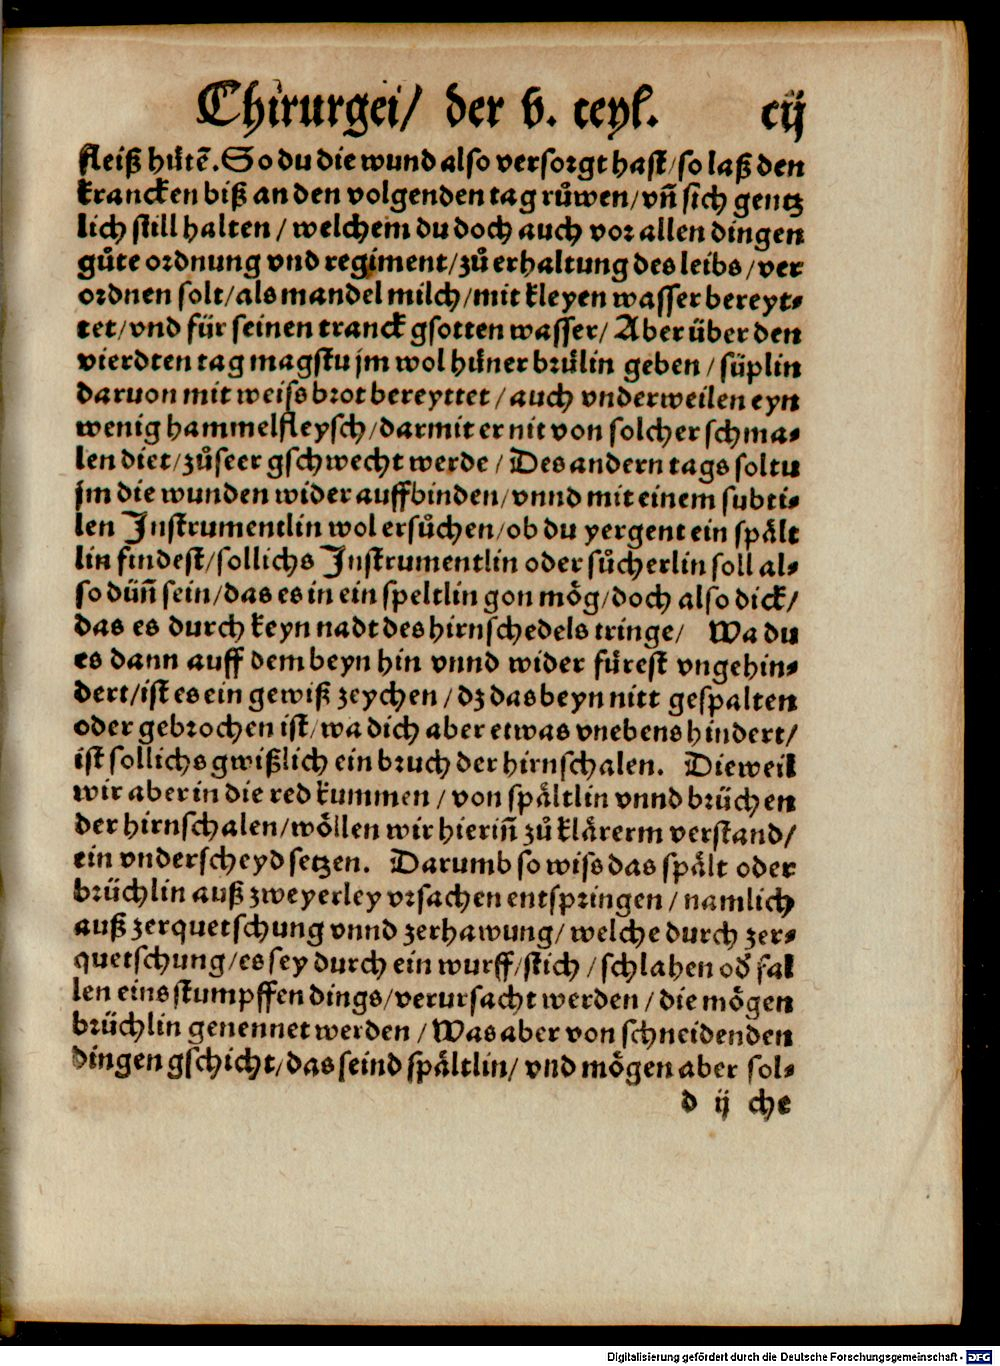 Chirurgei/ der v. teyl. cij
fleiß hůtẽ. So du die wund also versorgt hast/so laß den
krancken biß an den volgenden tag růwen/vñ sich gentz
lich still halten / welchem du doch auch vor allen dingen
gůte ordnung vnd regiment/zů erhaltung des leibs/ver
ordnen solt/als mandel milch/mit kleyen wasser bereyt⸗
tet/vnd für seinen tranck gsotten wasser/ Aber über den
vierdten tag magstu jm wol hůner brůlin geben / süplin
daruon mit weiss brot bereyttet / auch vnderweilen eyn
wenig hammelfleysch/darmit er nit von solcher schma⸗
len diet/zůseer gschwecht werde / Des andern tags soltu
jm die wunden wider auffbinden/vnnd mit einem subti⸗
len Instrumentlin wol ersůchen/ob du yergent ein spält
lin findest/sollichs Instrumentlin oder sůcherlin soll al⸗
so düñ sein/das es in ein speltlin gon mög/doch also dick/
das es durch keyn nadt des hirnschedels tringe/ Wa du
es dann auff dem beyn hin vnnd wider fürest vngehin⸗
dert/ist es ein gewiß zeychen / dz das beyn nitt gespalten
oder gebrochen ist/wa dich aber etwas vnebens hindert/
ist sollichs gwißlich ein bruch der hirnschalen. Dieweil
wir aber in die red kummen / von spältlin vnnd brüchen
der hirnschalen/wöllen wir hieriñ zů klärerm verstand/
ein vnderscheyd setzen. Darumb so wiss das spält oder
brüchlin auß zweyerley vrsachen entspringen / namlich
auß zerquetschung vnnd zerhawung/welche durch zer⸗
quetschung/es sey durch ein wurff/stich /schlahen od̓ fal
len eins stumpffen dings/verursacht werden / die mögen
brüchlin genennet werden / Was aber von schneidenden
dingen gschicht/das seind spältlin/ vnd mögen aber sol⸗
d ij che
Digitalisierung gefördert durch die Deutsche Forschungsgemeinschaft - DFG